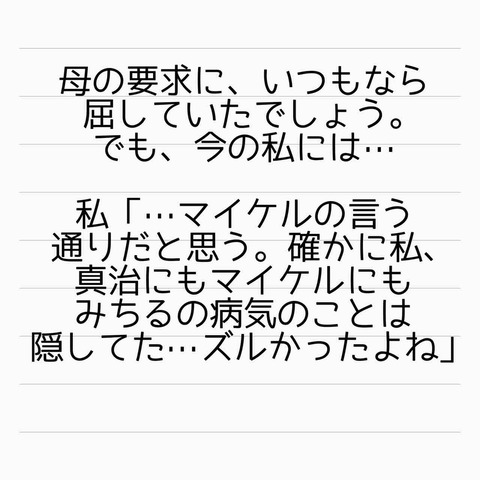 母の要求に、いつもなら
屈していたでしょう。
でも、今の私には…
私「…マイケルの言う
通りだと思う。確かに私、
真治にもマイケルにも
みちるの病気のことは
隠してた…ズルかったよね」